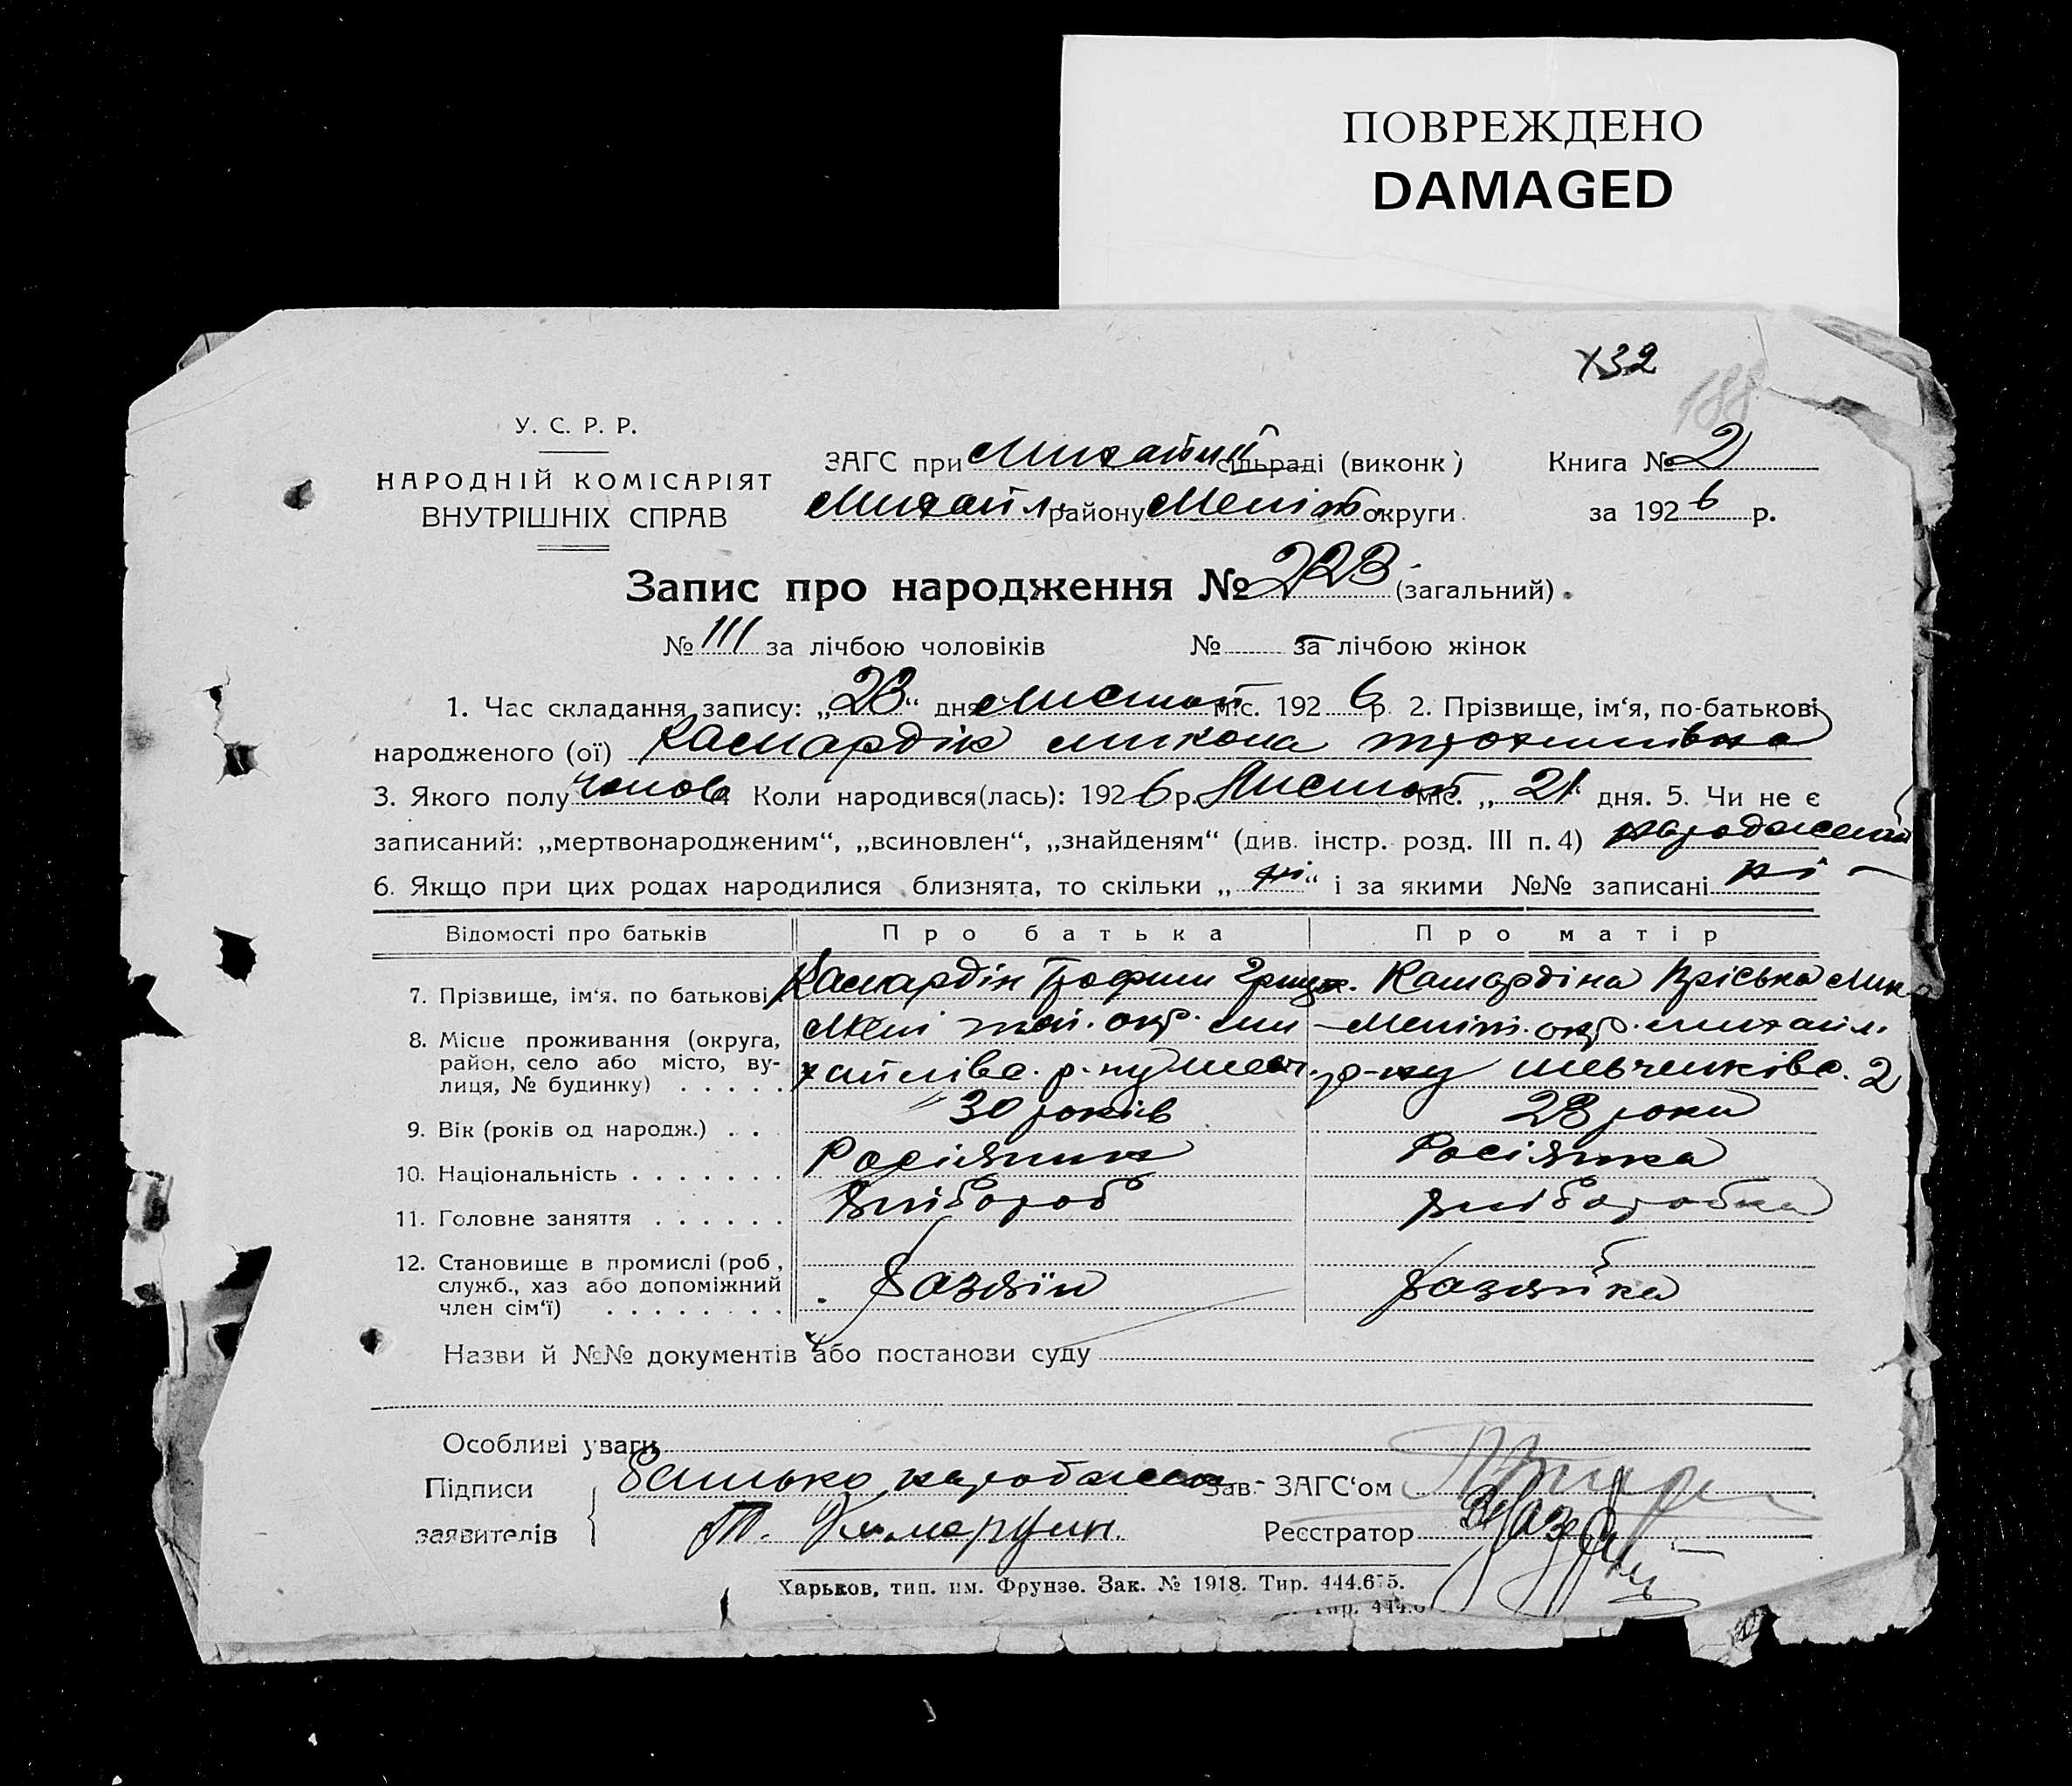 ПОВРЕЖДЕНО
DAMAGED
132
188
У. С. Р. Р.
НАРОДНІЙ КОМІСАРІЯТ
ВНУТРІШНІХ СПРАВ
ЗАГС при сільраді (виконк)
Книга № 2
Михайл. району Меліт. округи.
за 1926 р.
Запис про народження № 223 (загальний).
№ 111 за лічбою чоловіків № за лічбою жінок
1. Час складання запису: „23“ дня Листоп міс. 1926 р. 2. Прізвище, ім‘я, по-батькові
народженого (ої) Камардін Микола
3. Якого полу чолов 4. Коли народився(лась): 1926 р. Листоп міс. „21“ дня. 5. Чи не є
записаний: „мертвонародженим“, „всиновлен“, „знайденям“ (див. інстр. розд. III п. 4) народжений
6. Якщо при цих родах народилися близнята, то скільки „ні“ і за якими №№ записані ні
Відомості про батьків Про батька Про матір
7. Прізвище, ім‘я, по батькові Камардін Трофим Григ. Камардіна Пріська Мик
8. Місце проживання (округа, район, село або місто, вулиця, № будинку) Меліт. окр. михайл.
30 років 28 роки
9. Вік (років од народж.)
10. Національність Росіянин Росіянка
11. Головне заняття Хлібороб Хліборобка
12. Становище в промислі (роб, служб., хаз або допоміжний член сім‘ї) Хазяїн Хазяйка
Назви й №№ документів або постанови суду
Особливі уваги
Підписи заявителів Батько Зав. ЗАГС‘ом
Т. Камардин. Реєстратор
Харьков, тип. им. Фрунзе. Зак. № 1918. Тир. 444.675.